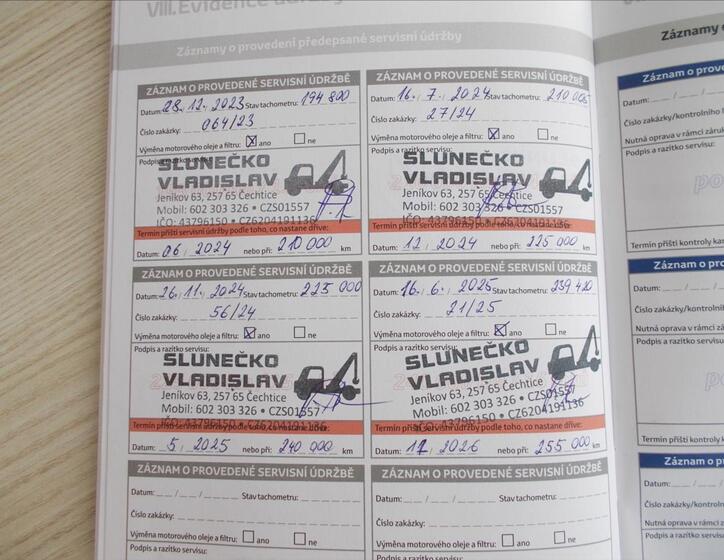 VIII. Evidence údržby
Záznamy o provedení předepsané servisní údržby
ZÁZNAM O PROVEDENÉ SERVISNÍ ÚDRŽBĚ
Datum: 28. 12. 2023 Stav tachometru: 194 800
Číslo zakázky: 064/23
Výměna motorového oleje a filtru: X ano ne
Podpis a razítko servisu:
SLUNEČKO
VLADISLAV
Jeníkov 63, 257 65 Čechtice
Mobil: 602 303 326 • CZS01557
IČO: 43796150 • CZ6204191136
Termín příští servisní údržby podle toho, co nastane dříve:
Datum: 06. 2024 nebo při: 210 000 km
ZÁZNAM O PROVEDENÉ SERVISNÍ ÚDRŽBĚ
Datum: 16. 7. 2024 Stav tachometru: 210 005
Číslo zakázky: 27/24
Výměna motorového oleje a filtru: X ano ne
Podpis a razítko servisu:
SLUNEČKO
VLADISLAV
Jeníkov 63, 257 65 Čechtice
Mobil: 602 303 326 • CZS01557
IČO: 43796150 • CZ6204191136
Termín příští servisní údržby podle toho, co nastane dříve:
Datum: 12. 2024 nebo při: 225 000 km
ZÁZNAM O PROVEDENÉ SERVISNÍ ÚDRŽBĚ
Datum: 26. 11. 2024 Stav tachometru: 225 000
Číslo zakázky: 56/24
Výměna motorového oleje a filtru: X ano ne
Podpis a razítko servisu:
SLUNEČKO
VLADISLAV
Jeníkov 63, 257 65 Čechtice
Mobil: 602 303 326 • CZS01557
IČO: 43796150 • CZ6204191136
Termín příští servisní údržby podle toho, co nastane dříve:
Datum: 5. 2025 nebo při: 240 000 km
ZÁZNAM O PROVEDENÉ SERVISNÍ ÚDRŽBĚ
Datum: 16. 6. 2025 Stav tachometru: 239 420
Číslo zakázky: 21/25
Výměna motorového oleje a filtru: X ano ne
Podpis a razítko servisu:
SLUNEČKO
VLADISLAV
Jeníkov 63, 257 65 Čechtice
Mobil: 602 303 326 • CZS01557
IČO: 43796150 • CZ6204191136
Termín příští servisní údržby podle toho, co nastane dříve:
Datum: 2026 nebo při: 255 000 km
ZÁZNAM O PROVEDENÉ SERVISNÍ ÚDRŽBĚ
Datum: Stav tachometru:
Číslo zakázky:
Výměna motorového oleje a filtru: ano ne
Podpis a razítko servisu:
ZÁZNAM O PROVEDENÉ SERVISNÍ ÚDRŽBĚ
Datum: Stav tachometru:
Číslo zakázky:
Výměna motorového oleje a filtru: ano ne
Podpis a razítko servisu:
Záznamy
Záznam o prov
Datum:
Číslo zakázky/kontrolního l
Nutná oprava v rámci záruk
Podpis a razítko servisu:
Termín příští kontroly kar
Záznam o prov
Datum:
Číslo zakázky/kontrolní
Nutná oprava v rámci
Podpis a razítko servisu:
Termín příští kontroly
Záznam o p
Datum:
Číslo zakázky/kontrol
Nutná oprava v rámc
Podpis a razítko servis